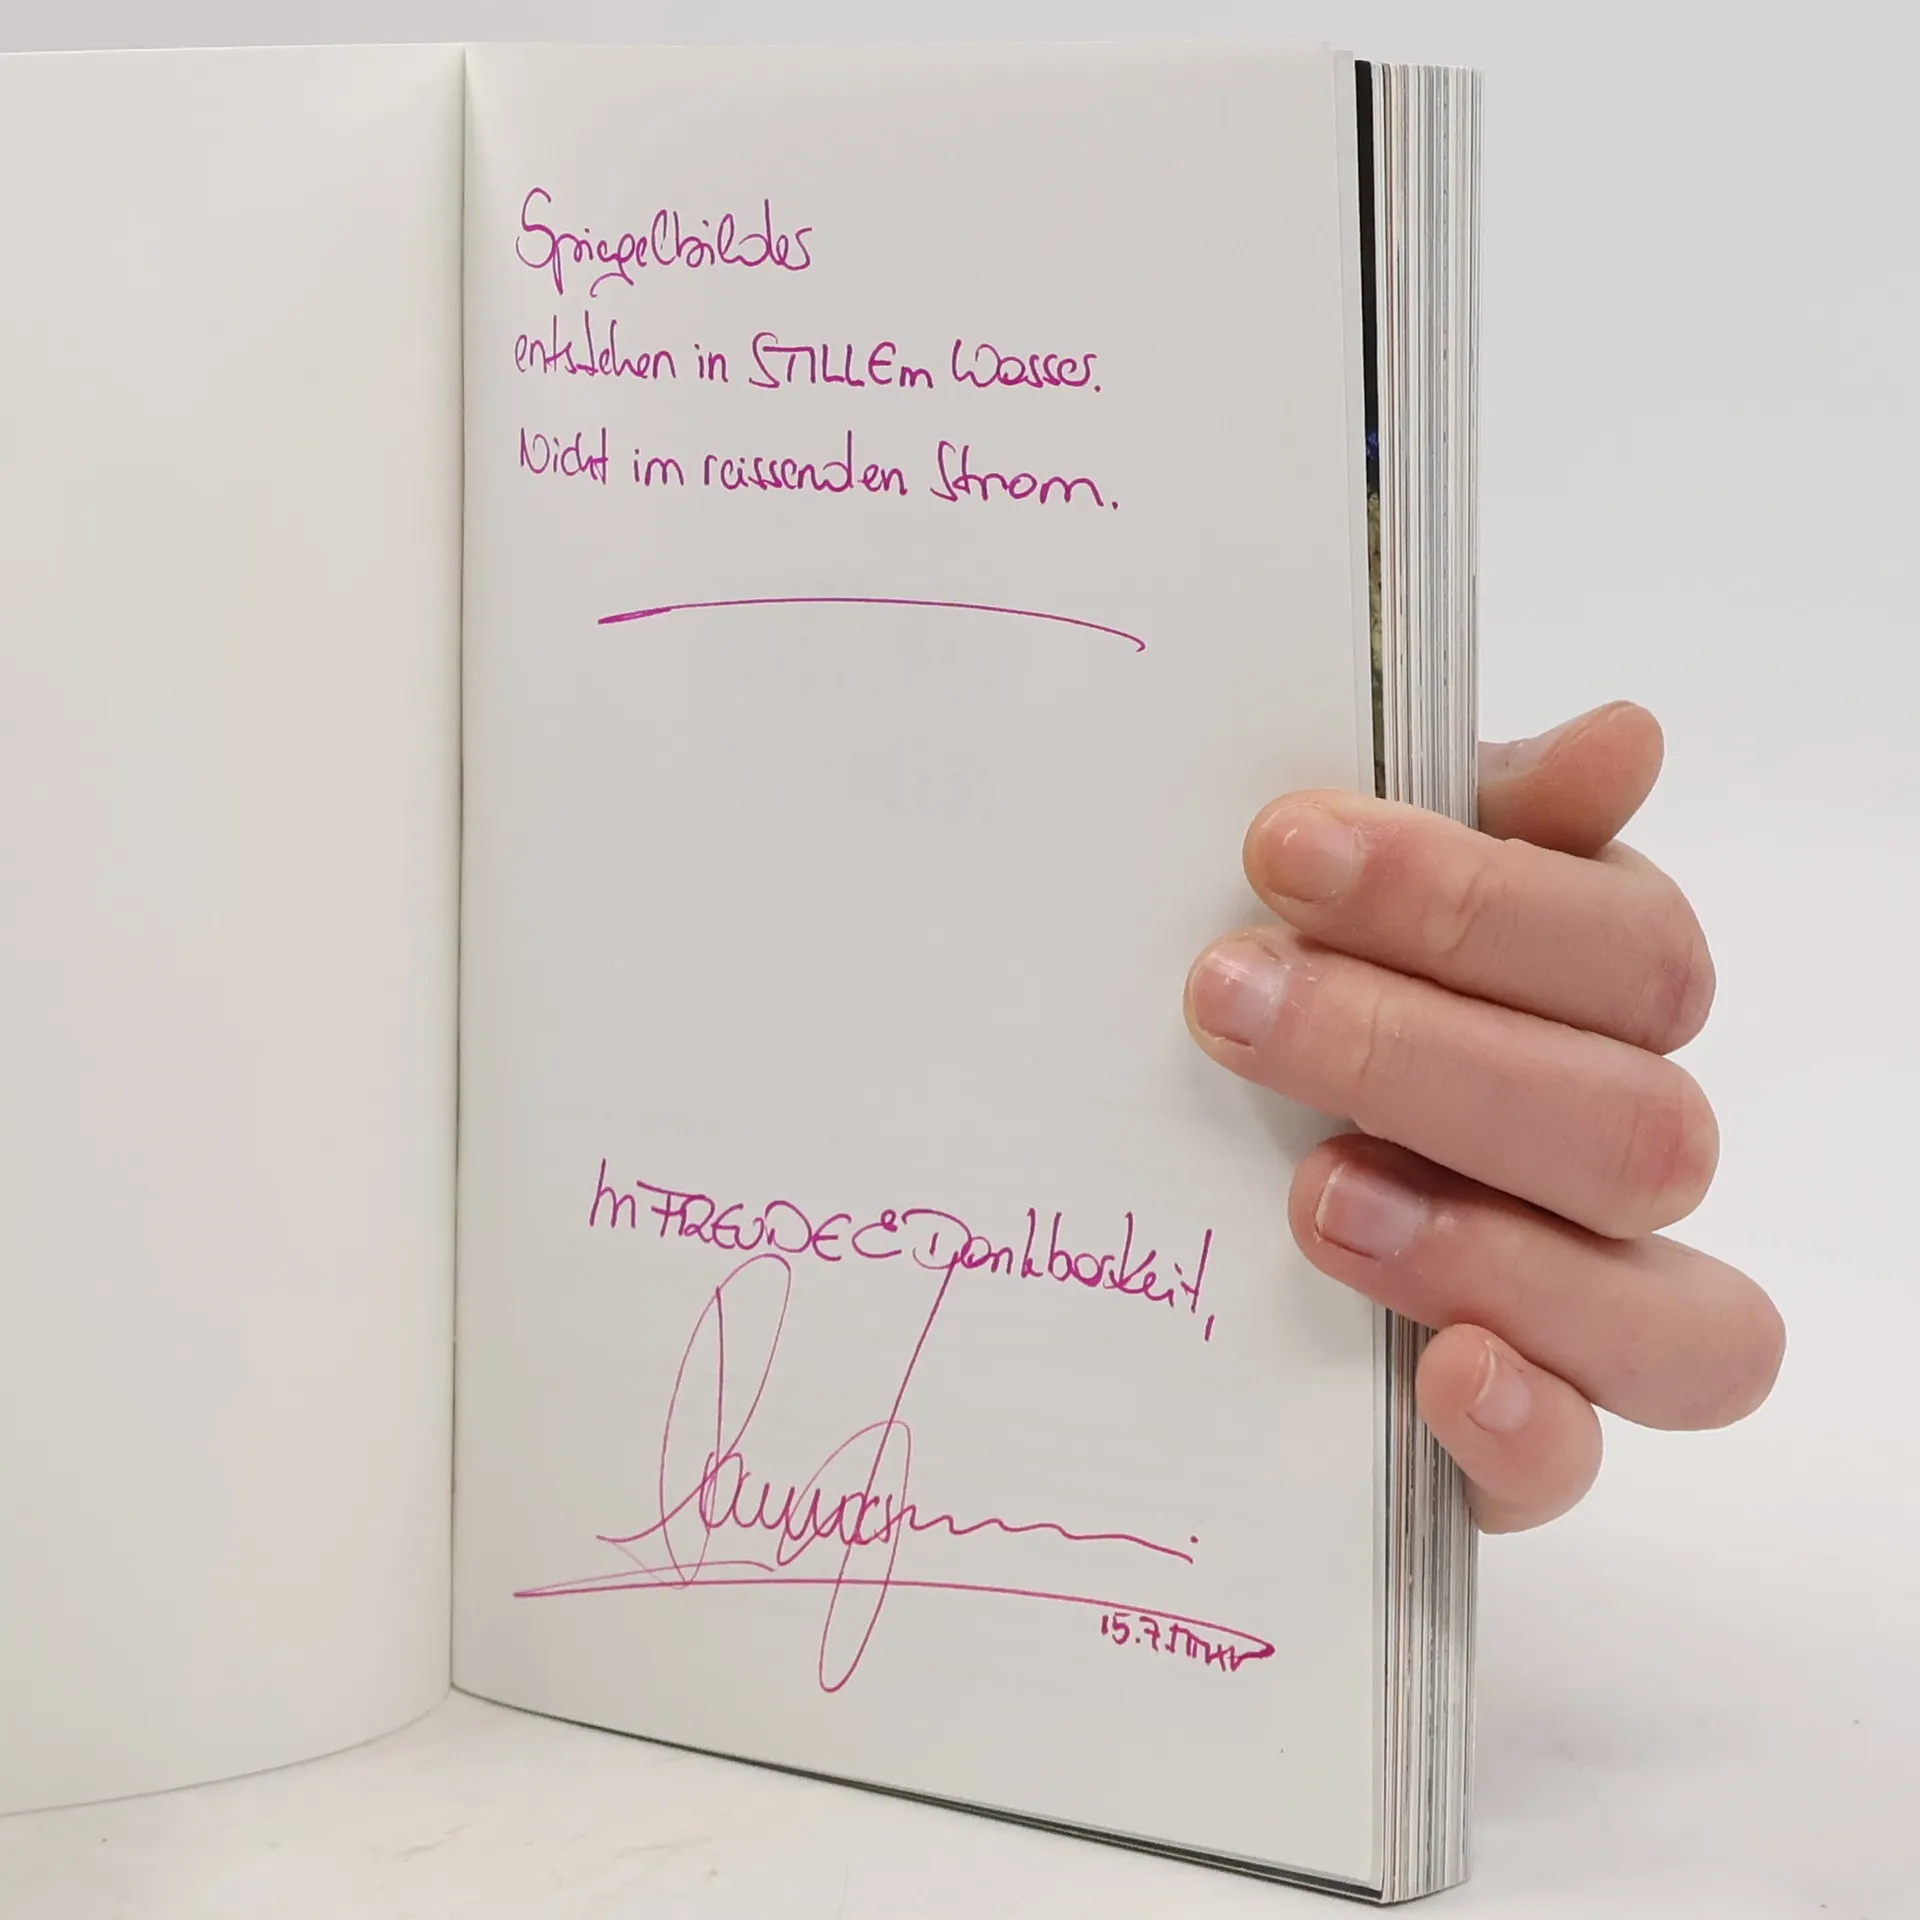 Spiegelbilder
entstehen in STILLEm Wasser.
Nicht im reissenden Strom.
In FREUDE & Dankbarkeit,
15.7.